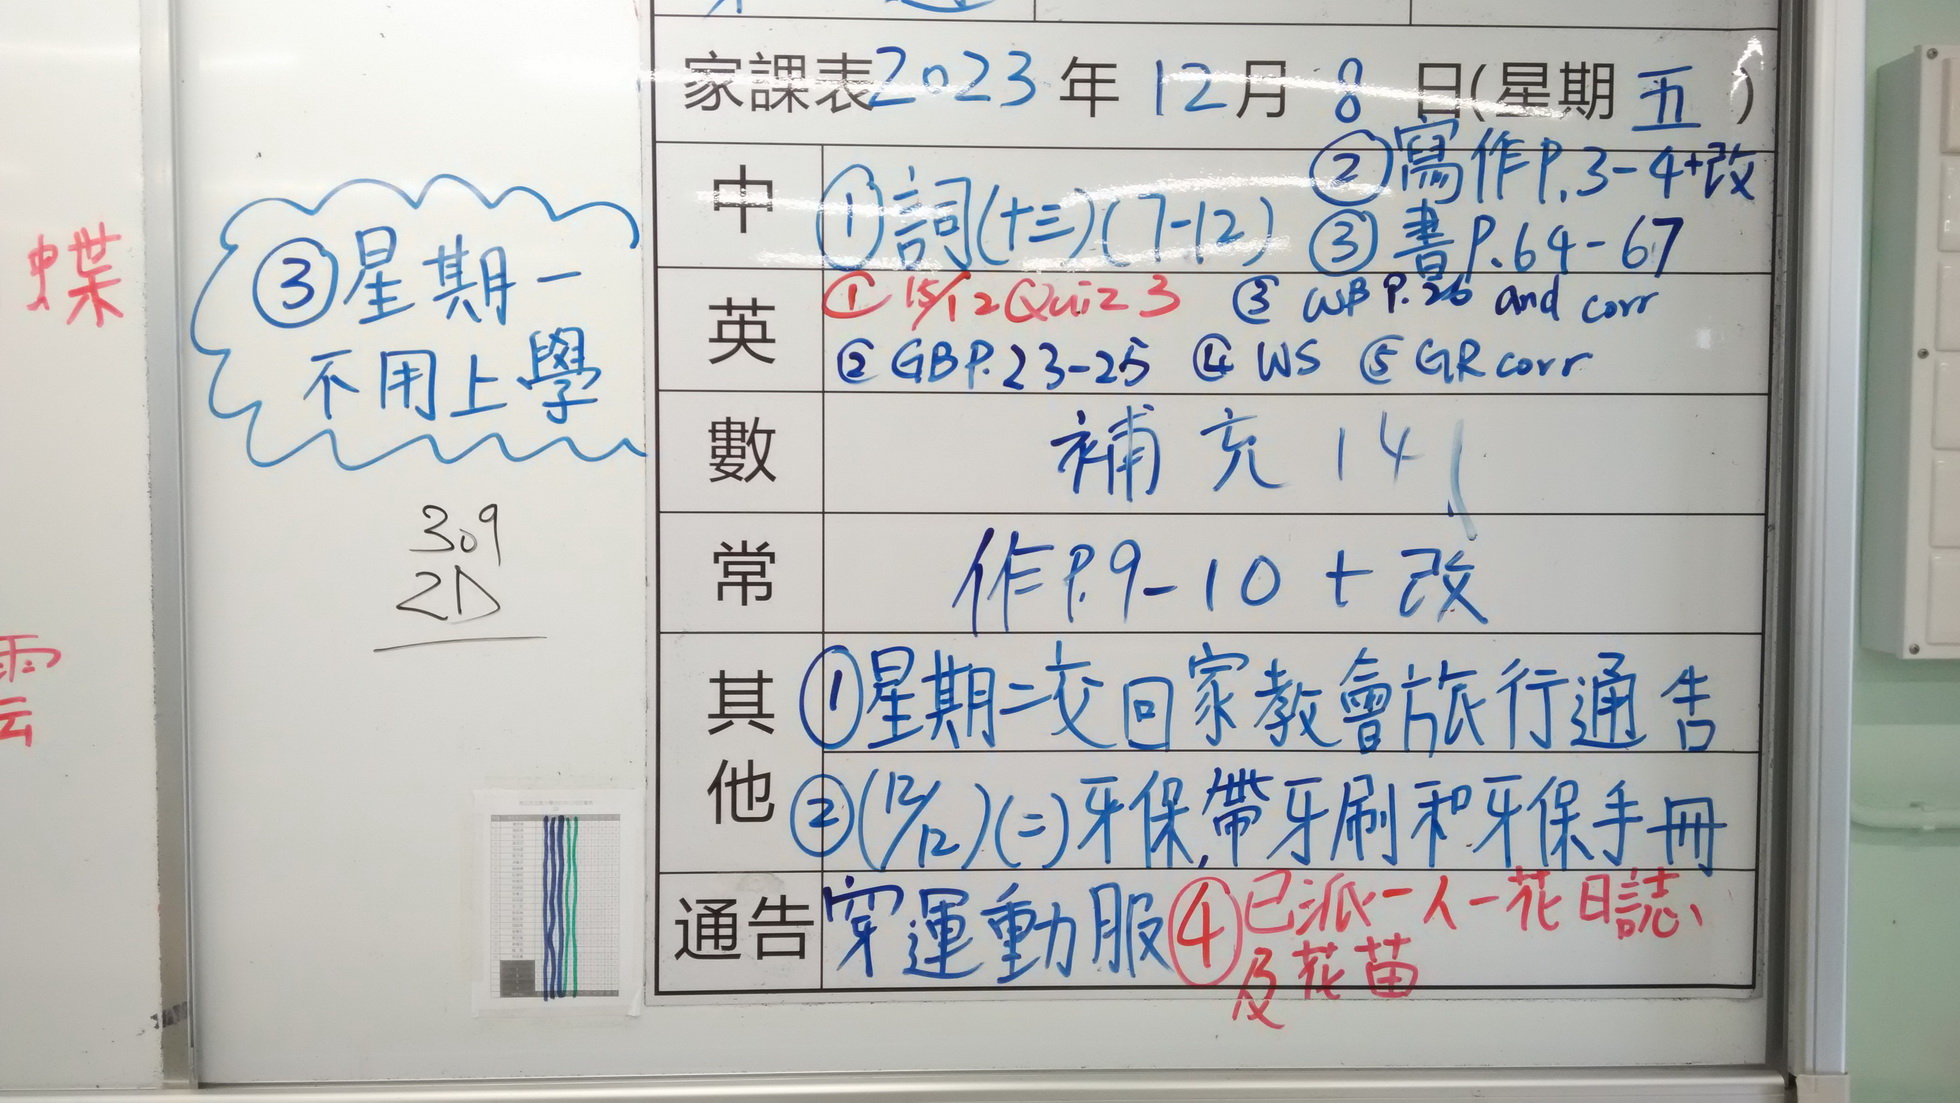 蝶
雲
③星期一
不用上學
309
2D
家課表2023年12月8日(星期五)
中
①詞(十三)(7-12)
②寫作P.3-4+改
③書P.64-67
英
①15/12 Quiz 3 ③ WB P.26 and corr
② GB P.23-25 ④ WS ⑤ GR corr
數
補充14
常
作P.9-10+改
其他
①星期二交回家教會旅行通告
②(12/12)(二)牙保,帶牙刷和牙保手冊
通告
穿運動服
④已派一人一花日誌、
及花苗